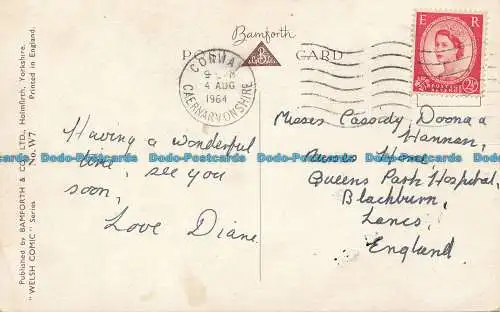 Bamforth
POST CARD
E R
POSTAGE REVENUE
2½D
CONWAY
4 AUG
1964
CAERNARVONSHIRE
Published by BAMFORTH & CO., LTD., Holmfirth, Yorkshire.
"WELSH COMIC" Series No. W7 Printed in England.
Having a wonderful
time, see you
soon,
Love Diane
Misses Cassidy, Doona &
Hannan,
Nurses Home
Queens Park Hospital,
Blackburn,
Lancs,
England
Dodo-Postcards Dodo-Postcards Dodo-Postcards Dodo-Postcards